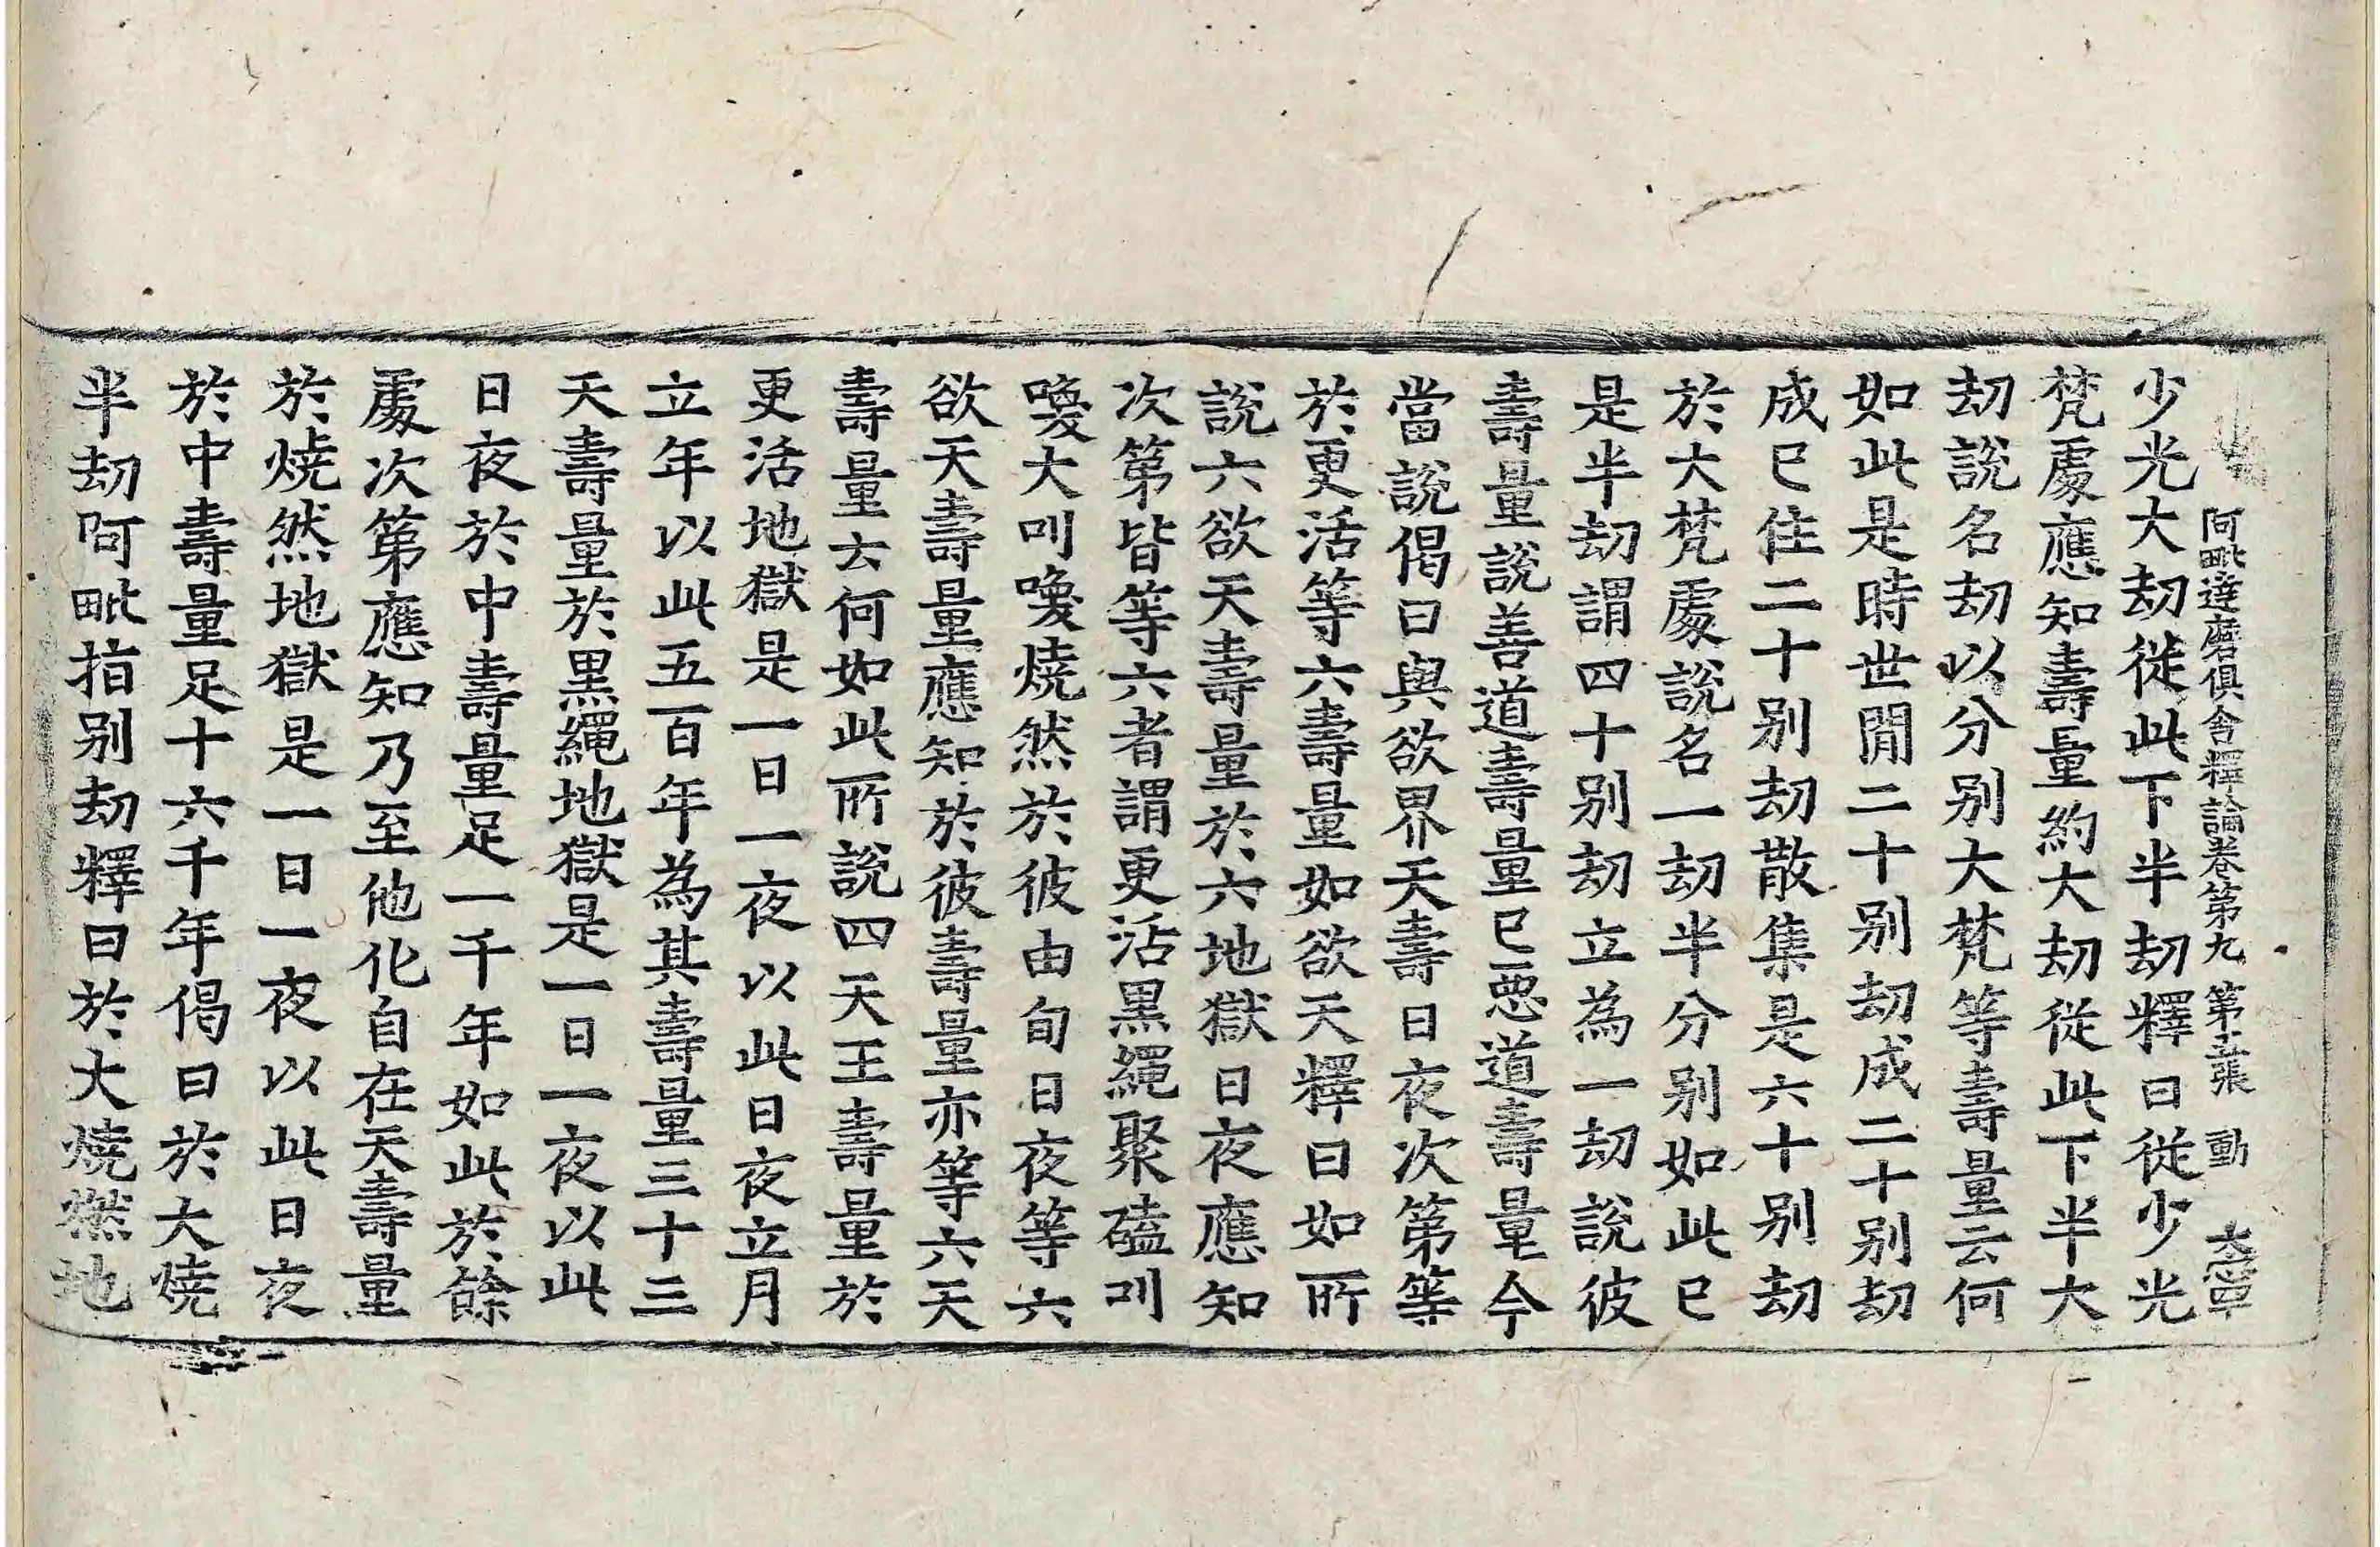 阿毗達磨俱舍釋論卷第九 第 張 動
少光大劫從此下半劫釋曰從少光
梵處應知壽量約大劫從此下半大
劫說名劫以分別大梵等壽量云何
如此是時世間二十別劫成二十別劫
成已住二十別劫散集是六十別劫
於大梵處說名一劫半分別如此已
是半劫謂四十別劫立為一劫說彼
壽量說善道壽量已惡道壽量今
當說偈曰與欲界天壽日夜次第等
於更活等六壽量如欲天釋曰如所
說六欲天壽量於六地獄日夜應知
次第皆等六者謂更活黑繩聚磕叫
喚大叫喚燒然於彼由旬日夜等六
欲天壽量應知於彼壽量亦等六天
壽量去何如此所說四天王壽量於
更活地獄是一日一夜以此日夜立月
立年以此五百年為其壽量三十三
天壽量於黑繩地獄是一日一夜以此
日夜於中壽量足一千年如此於餘
處次第應知乃至他化自在天壽量
於燒然地獄是一日一夜以此日夜
於中壽量足十六千年偈曰於大燒
半劫阿毗指別劫釋曰於大燒然地